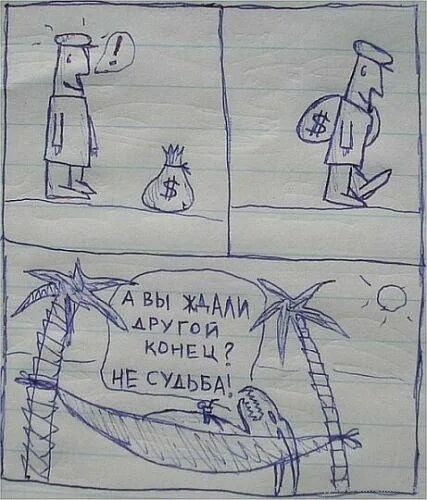 !
$
$
А ВЫ ЖДАЛИ
ДРУГОЙ
КОНЕЦ?
НЕ СУДЬБА!